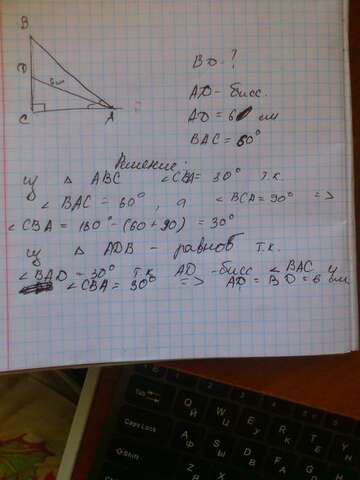 B
D
6см
C
A
BD - ?
AD - бисс.
AD = 6 см
BAC = 60°
Решение:
1) △ ABC ∠CBA = 30° т.к.
∠ BAC = 60°, а ∠ BCA = 90° =>
∠ CBA = 180° - (60 + 90) = 30°
△ ADB - равноб т.к.
∠ BAD = 30° т.к AD - бисс ∠ BAC и
∠ CBA = 30° => AD = BD = 6 см
Tab
Q Й
W Ц
E У
R К
T Е
Caps Lock
A Ф
S Ы
D В
F А
Shift
Z Я
X